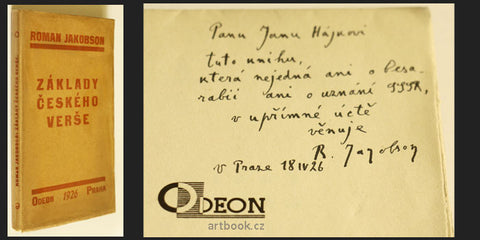 ROMAN JAKOBSON
ZÁKLADY
ČESKÉHO
VERŠE
ODEON 1926 PRAHA
ROMAN JAKOBSON: ZÁKLADY ČESKÉHO VERŠE
Panu Janu Hájkovi
tuto knihu,
která nejedná ani o besa-
rabii ani o uznání SSSR,
v upřímné úctě
věnuje
R. Jakobson
v Praze 18 IV 26
ODEON
artbook.cz